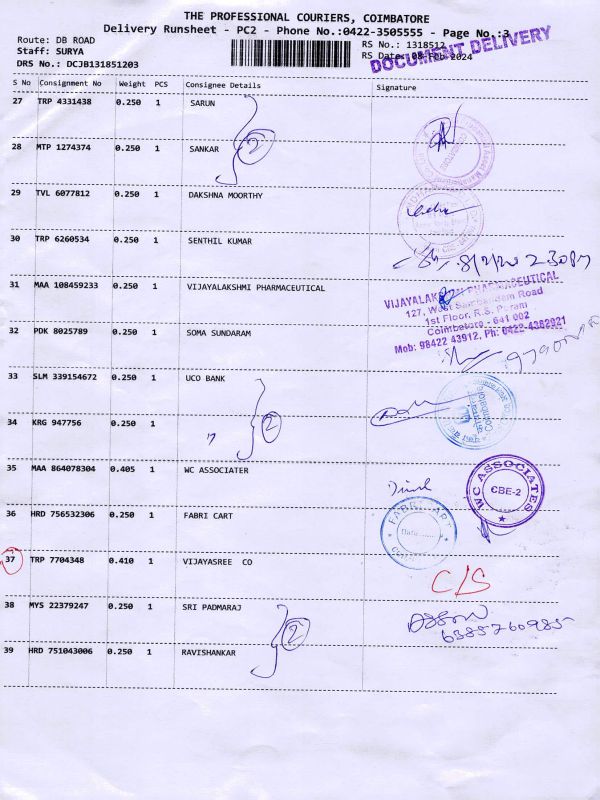 THE PROFESSIONAL COURIERS, COIMBATORE
Delivery Runsheet - PC2 - Phone No.:0422-3505555 - Page No.:3
Route: DB ROAD
Staff: SURYA
DRS No.: DCJB131851203
RS No.: 1318512
RS Date: 08-Feb-2024
DOCUMENT DELIVERY
S No Consignment No Weight PCS Consignee Details Signature
27 TRP 4331438 0.250 1 SARUN
28 MTP 1274374 0.250 1 SANKAR
2
29 TVL 6077812 0.250 1 DAKSHNA MOORTHY
30 TRP 6260534 0.250 1 SENTHIL KUMAR
31 MAA 108459233 0.250 1 VIJAYALAKSHMI PHARMACEUTICAL
VIJAYALAKSHMI PHARMACEUTICAL
127, West Sambandam Road
1st Floor, R.S. Puram
Coimbatore - 641 002
Mob: 98422 43912, Ph: 0422-4382921
32 PDK 8025789 0.250 1 SOMA SUNDARAM
33 SLM 339154672 0.250 1 UCO BANK
34 KRG 947756 0.250 1 "
2
35 MAA 864078304 0.405 1 WC ASSOCIATER
WC ASSOCIATES
CBE-2
36 HRD 756532306 0.250 1 FABRI CART
FABRI ART
Date
37 TRP 7704348 0.410 1 VIJAYASREE CO
C/S
38 MYS 22379247 0.250 1 SRI PADMARAJ
2
6385760985
39 HRD 751043006 0.250 1 RAVISHANKAR